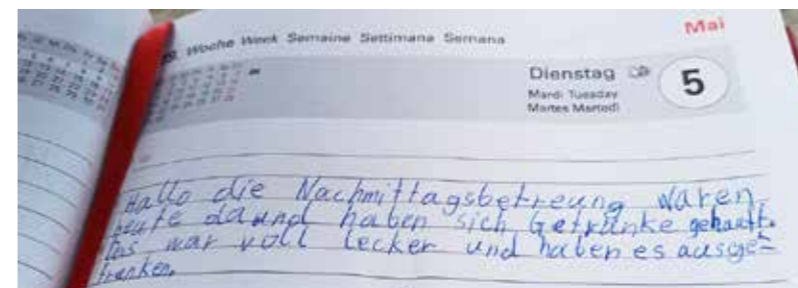 19. Woche Week Semaine Settimana Semana
Mai
Dienstag
5
Mardi Tuesday
Martes Martedì
Hallo die Nachmittagsbetreung waren
heute da und haben sich Getränke gekauft.
Das war voll lecker und haben es ausge-
trunken.